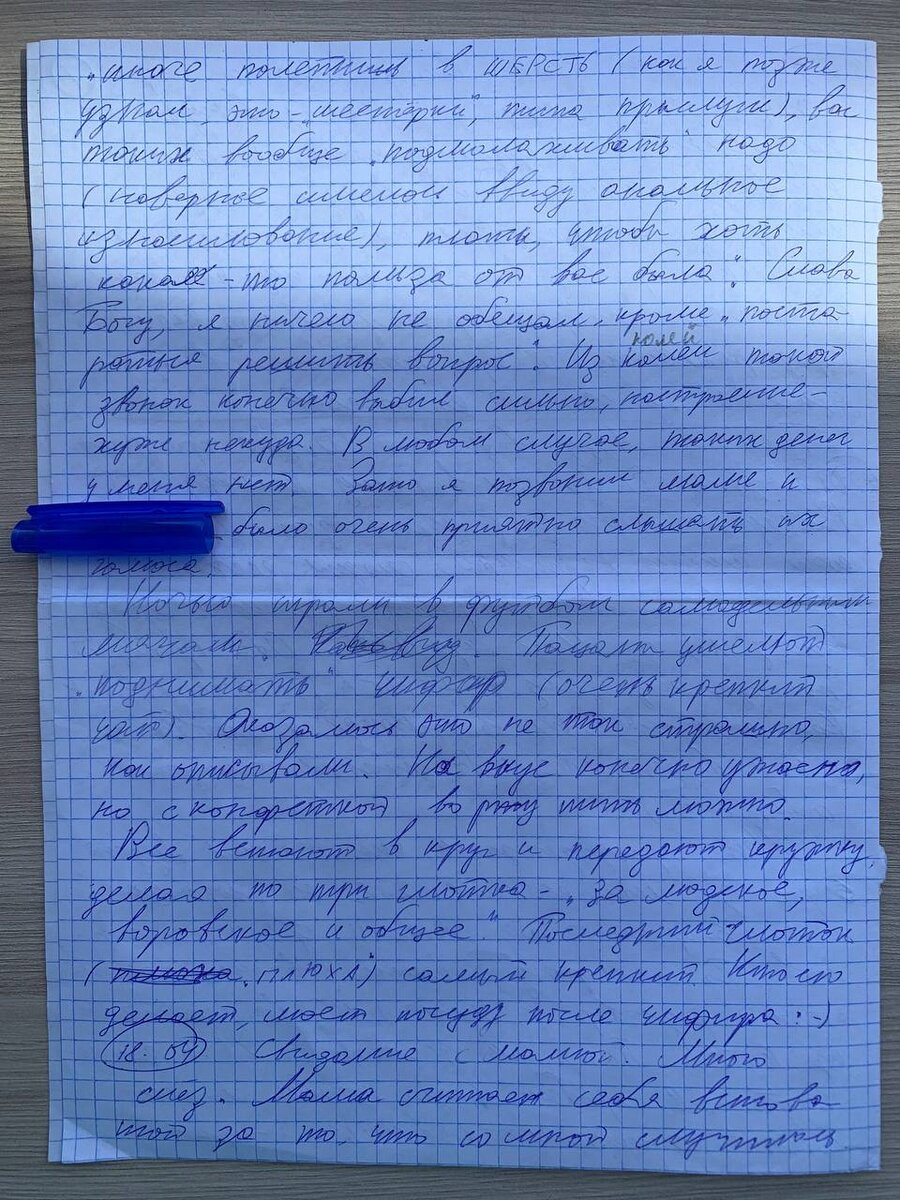 „иначе полетишь в ШЕРСТЬ (как я позже
узнал, это - „шестерки", типа прислуги), вас
таких вообще „подмолаживать" надо
(наверное имелось ввиду анальное
изнасилование), плати, чтобы хоть
какая-то польза от вас была". Слава
Богу, я ничего не обещал, кроме „поста-
раться решить вопрос". Из колеи такой
колей
звонок конечно выбил сильно, настроение-
хуже некуда. В любом случае, таких денег
у меня нет. Зато я позвонил маме и
, было очень приятно слышать их
голоса.
Ночью играли в футбол самодельным
мячом. Пацаны умеют
„поднимать" чифир (очень крепкий
чай). Оказалось это не так страшно,
как описывали. На вкус конечно ужасно,
но с конфеткой во рту пить можно.
Все встают в круг и передают кружку,
делая по три глотка - „за людское,
воровское и общее". Последний глоток
(„ПЛЮХА") самый крепкий. Кто его
делает, моет посуду после чифира :-)
18.04 Свидание с мамой. Много
слез. Мама считает себя винова
той за то, что со мной случилось